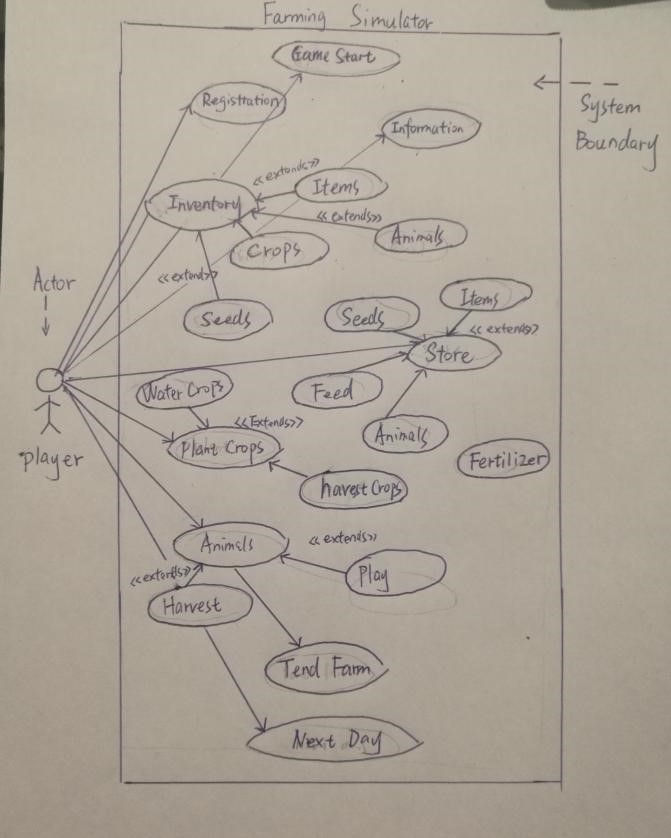 Farming Simulator
Game Start
Registration
System
Boundary
Information
<<extends>>
Items
Inventory
<<extends>>
Animals
Crops
Actor
<<extend>>
Seeds
Seeds
Items
<<extends>>
Store
Water Crops
Feed
<<Extends>>
Animals
Plant Crops
Fertilizer
player
harvest Crops
<<extends>>
Animals
<<extends>>
Play
Harvest
Tend Farm
Next Day